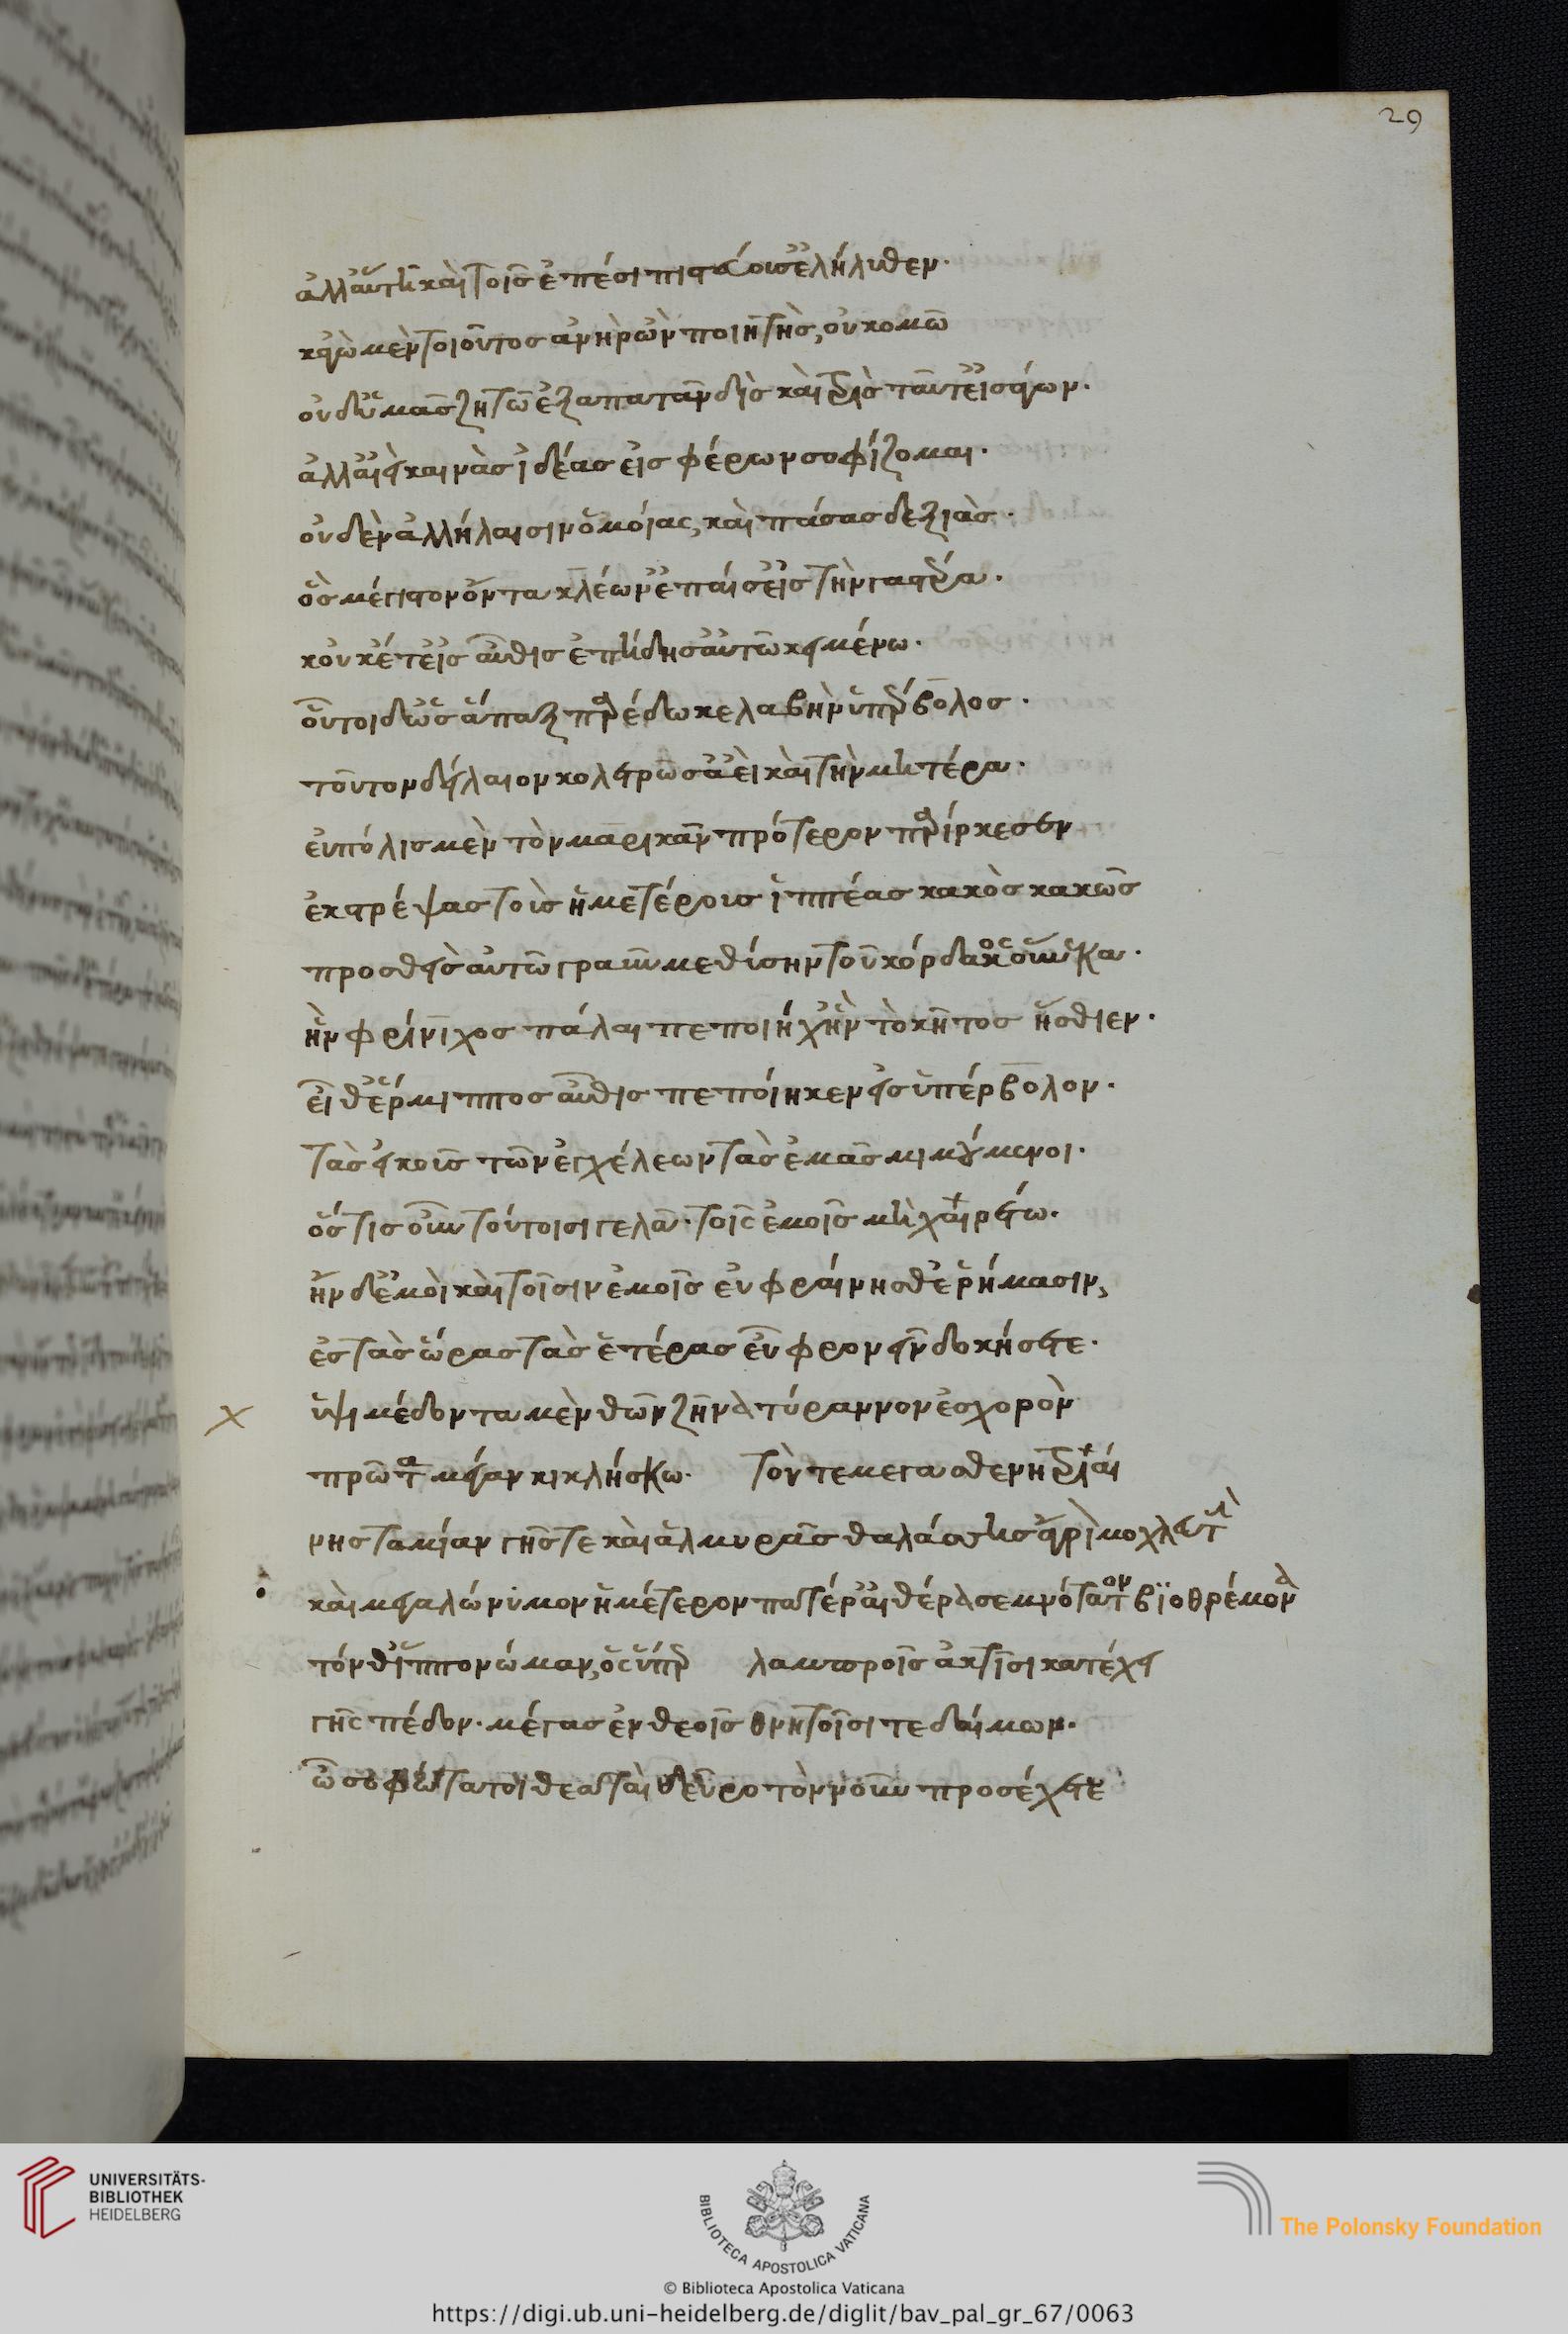 29
ἀλλ' αὐτῆ καὶ τοῖς ἔπεσι πιστεύουσ' ἐλήλυθεν·
κἀγὼ μὲν τοιοῦτος ἀνὴρ ὢν ποιητὴς, οὐ κομῶ
οὐδ' ὑμᾶς ζητῶ ἐξαπατᾶν δὶς καὶ τρὶς ταῦτ' εἰσάγων.
ἀλλ' ἀεὶ καινὰς ἰδέας εἰσφέρων σοφίζομαι.
οὐδὲν ἀλλήλαισιν ὁμοίας, καὶ πάσας δεξιάς.
ὃς μέγιστον ὄντα κλέων' ἔπαισ' εἰς τὴν γαστέρα.
κοὐκέτ' εἰς αὖθις ἐπήδησ' αὐτῶ κειμένω.
οὗτοι δ' ὡς ἅπαξ παρέδωκε λαβὴν ὑπέρβολος.
τοῦτον δείλαιον κολετρῶσ' ἀεὶ καὶ τὴν μητέρα.
εὔπολις μὲν τὸν μαρικᾶν πρότερον παρείρκεσεν
ἐκστρέψας τοὺς ἡμετέρους ἱππέας κακὸς κακῶς
προσθεὶς αὐτῶ γραῦν μεθύσην τοῦ κόρδακος οὕνεκα.
ἣν φρύνιχος πάλαι πεποίηχ' ἣν τὸ κῆτος ἤσθιεν.
εἶθ' ἕρμιππος αὖθις πεποίηκεν εἰς ὑπέρβολον.
τὰς εἰκοὺς τῶν ἐγχέλεων τὰς ἐμὰς μιμούμενοι.
ὅστις οὖν τούτοισι γελᾶ· τοῖς ἐμοῖς μὴ χαιρέτω.
ἢν δ' ἐμοὶ καὶ τοῖσιν ἐμοῖς εὐφραίνησθ' εὑρήμασιν,
ἐς τὰς ὥρας τὰς ἑτέρας εὖ φρονεῖν δοκήσετε.
ὑψιμέδοντα μὲν θεῶν ζῆνα τύραννον ἐς χορὸν
πρῶτα μέγαν κικλήσκω. τόν τε μεγασθενῆ τριαί
νης ταμίαν γῆς τε καὶ ἁλμυρᾶς θαλάσσης ἄγριον μοχλευτὴν
καὶ μεγαλώνυμον ἡμέτερον πατέρ' αἰθέρα σεμνότατον βιοθρέμμονα
τόν θ' ἱππονώμαν, ὃς ὑπὲρ λαμπροῖς ἀκτῖσι κατέχει
γῆς πέδον. μέγας ἐν θεοῖς θνητοῖσί τε δαίμων.
ὦ σοφώτατοι θεαταὶ δεῦρο τὸν νοῦν προσέχετε
UNIVERSITÄTS-
BIBLIOTHEK
HEIDELBERG
BIBLIOTECA APOSTOLICA VATICANA
The Polonsky Foundation
© Biblioteca Apostolica Vaticana
https://digi.ub.uni-heidelberg.de/diglit/bav_pal_gr_67/0063